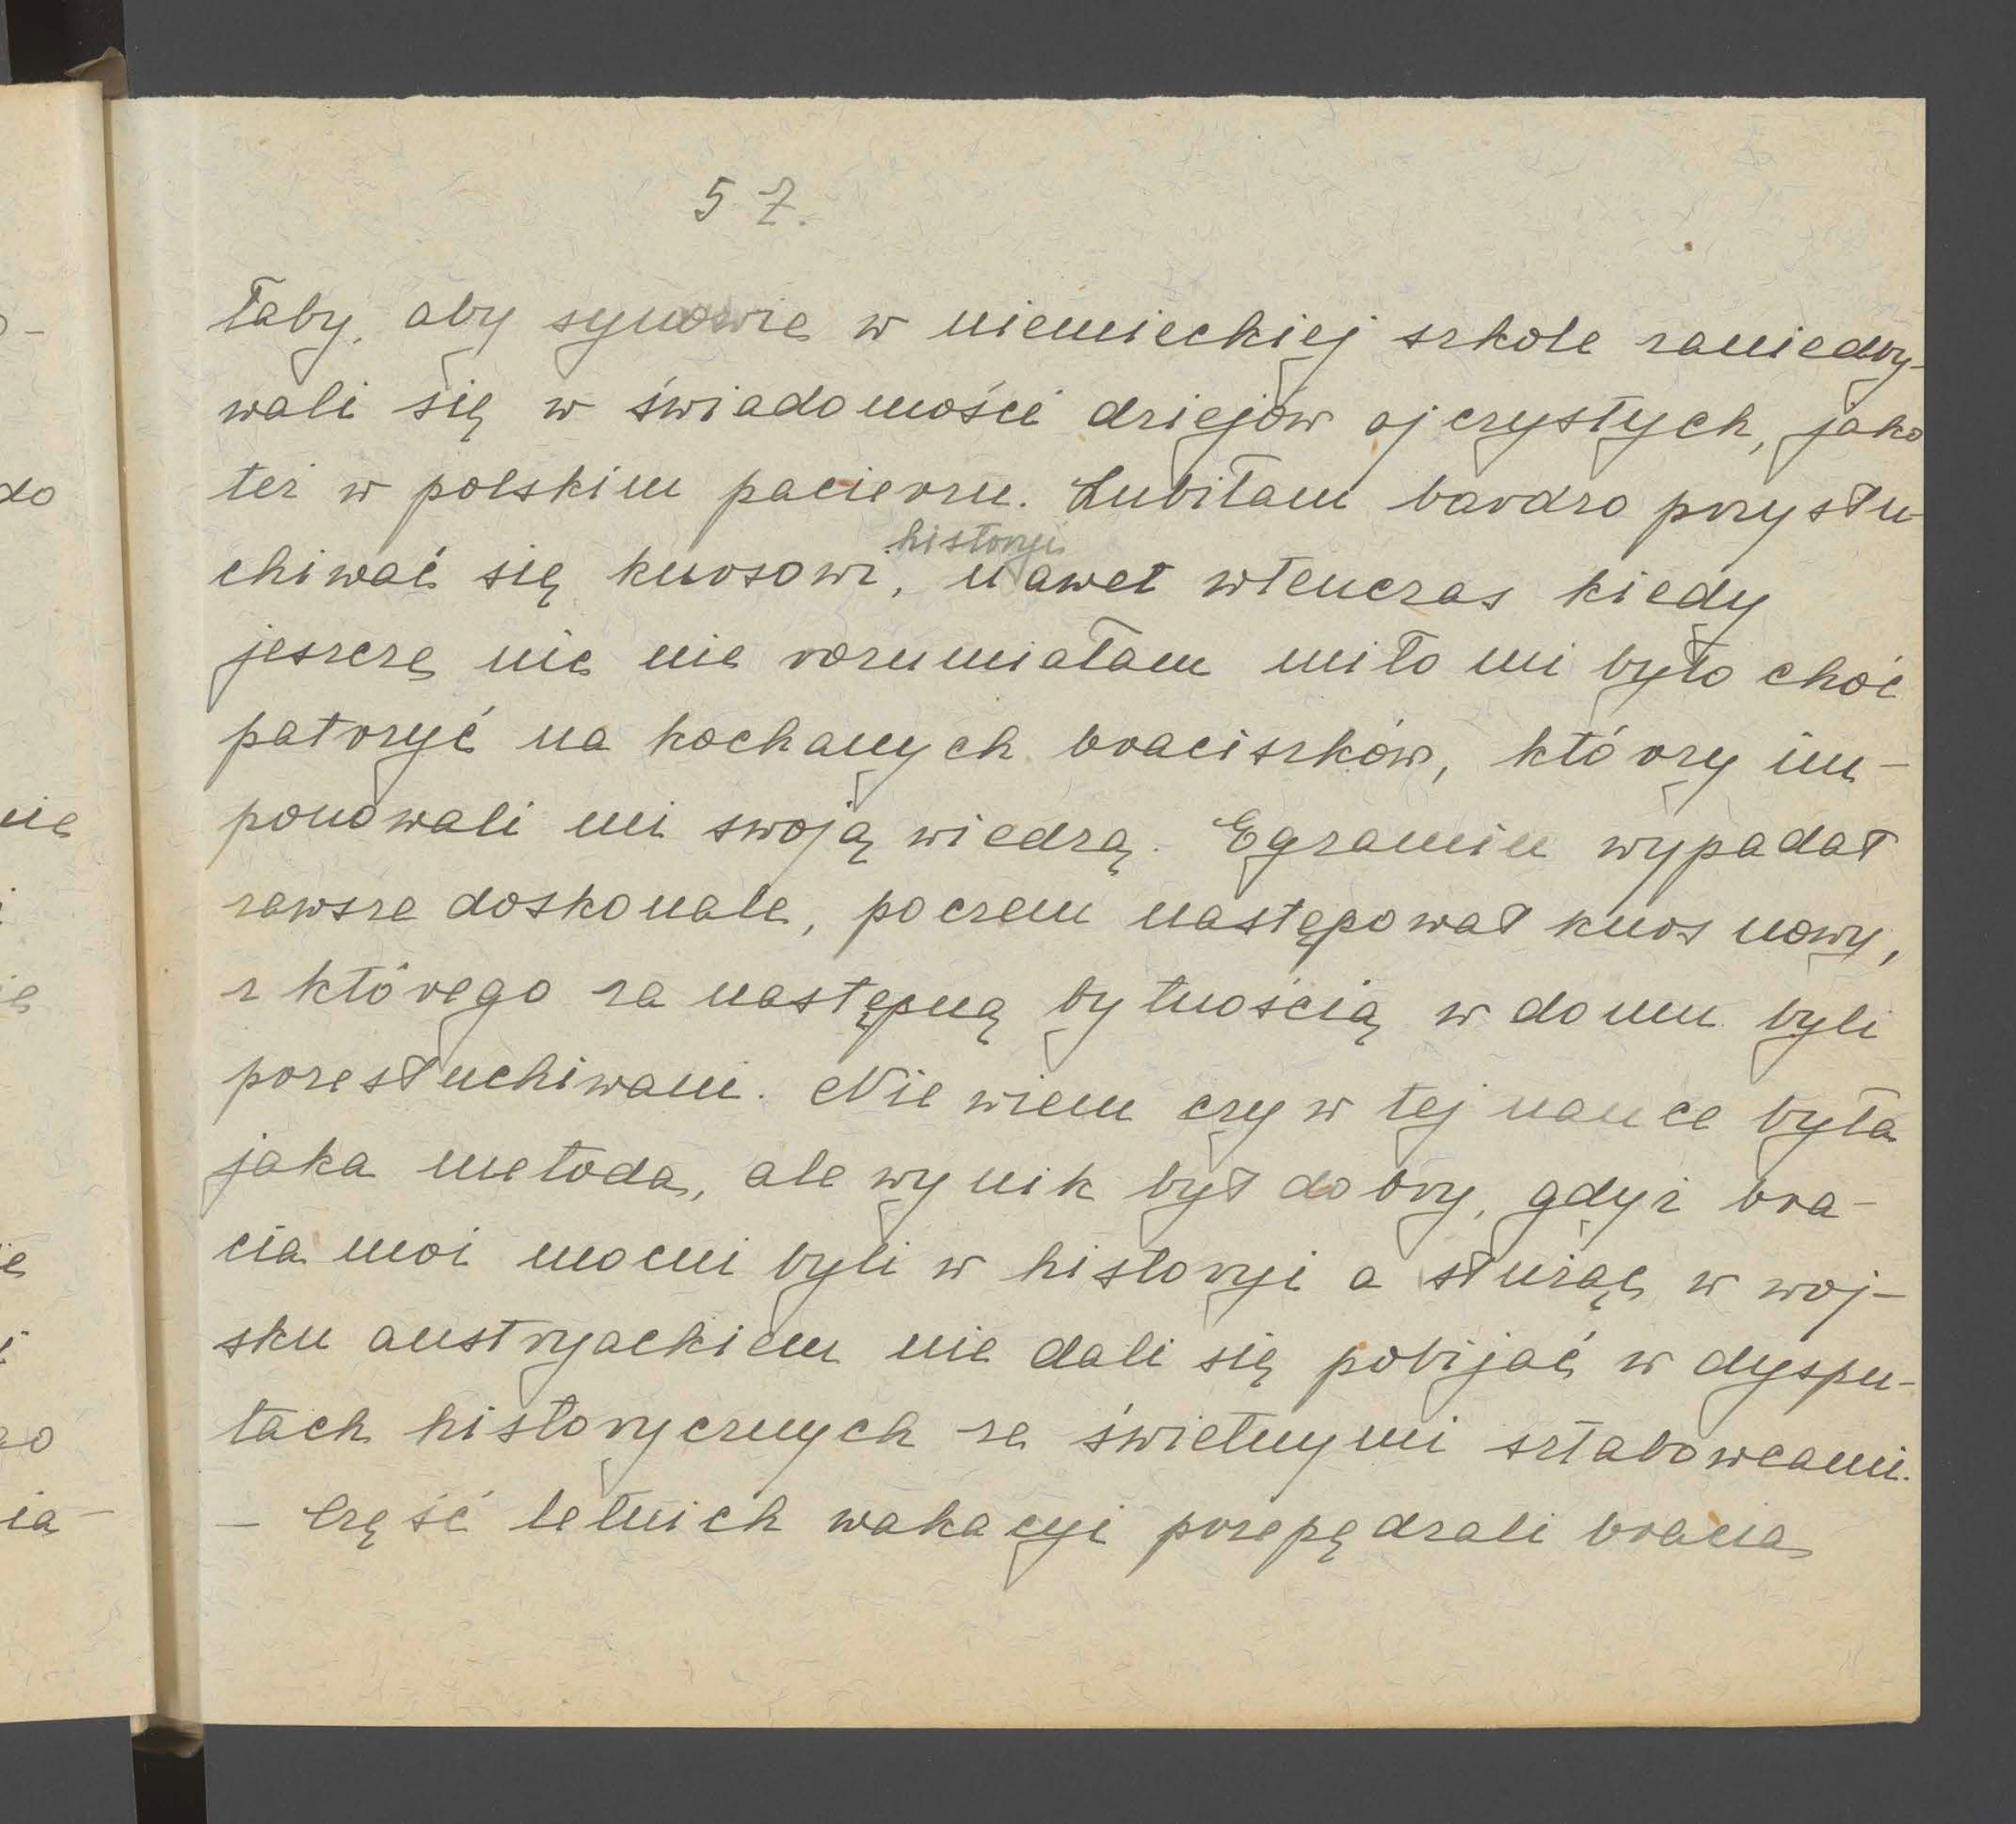 57.
łaby, aby synowie w niemieckiej szkole zaniedby-
wali się w świadomości dziejów ojczystych, jako
też w polskim pacierzu. Lubiłam bardzo przysłu-
chiwać się kursowi historyi, nawet wtenczas kiedy
jeszcze nic nie rozumiałam miło mi było choć
patrzyć na kochanych braciszków, którzy im-
ponowali mi swoją wiedzą. Egzamin wypadał
zawsze doskonale, poczem następował kurs nowy,
z którego za następną bytnością w domu byli
przesłuchiwani. Nie wiem czy w tej nauce była
jaka metoda, ale wynik był dobry, gdyż bra-
cia moi mocni byli w historyi a służąc w woj-
sku austryackiem nie dali się pobijać w dyspu-
tach historycznych ze świetnymi sztabowcami.
– Część letnich wakacyi przepędzali bracia